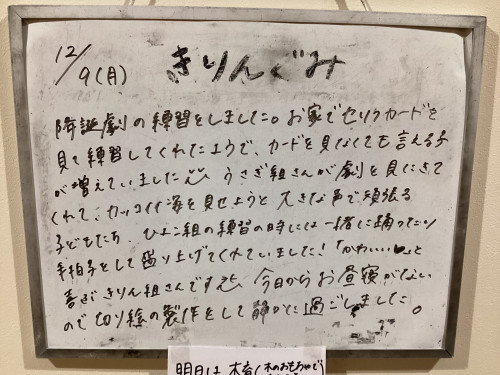 12/9(月) きりんぐみ
降誕劇の練習をしました。お家でセリフカードを
見て練習してくれたようで、カードを見なくても言える子
が増えていました うさぎ組さんが劇を見にきて
くれて、カッコイイ姿を見せようと大きな声で頑張る
子どもたち、ひよこ組の練習の時には一緒に踊ったり
手拍子をして盛り上げてくれていました!「かわいい」と
喜ぶきりん組さんです 今日からお昼寝がない
ので切り絵の製作をして静かに過ごしました。
明日は 木育(木のおもちゃで